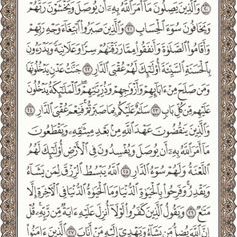 وَٱلَّذِينَ يَصِلُونَ مَآ أَمَرَ ٱللَّهُ بِهِۦٓ أَن يُوصَلَ وَيَخْشَوْنَ رَبَّهُمْ
وَيَخَافُونَ سُوٓءَ ٱلْحِسَابِ ٢١ وَٱلَّذِينَ صَبَرُوا۟ ٱبْتِغَآءَ وَجْهِ رَبِّهِمْ
وَأَقَامُوا۟ ٱلصَّلَوٰةَ وَأَنفَقُوا۟ مِمَّا رَزَقْنَٰهُمْ سِرًّا وَعَلَانِيَةً وَيَدْرَءُونَ
بِٱلْحَسَنَةِ ٱلسَّيِّئَةَ أُو۟لَٰٓئِكَ لَهُمْ عُقْبَى ٱلدَّارِ ٢٢ جَنَّٰتُ عَدْنٍ يَدْخُلُونَهَا
وَمَن صَلَحَ مِنْ ءَابَآئِهِمْ وَأَزْوَٰجِهِمْ وَذُرِّيَّٰتِهِمْ وَٱلْمَلَٰٓئِكَةُ يَدْخُلُونَ
عَلَيْهِم مِّن كُلِّ بَابٍ ٢٣ سَلَٰمٌ عَلَيْكُم بِمَا صَبَرْتُمْ فَنِعْمَ عُقْبَى ٱلدَّارِ ٢٤
وَٱلَّذِينَ يَنقُضُونَ عَهْدَ ٱللَّهِ مِنۢ بَعْدِ مِيثَٰقِهِۦ وَيَقْطَعُونَ
مَآ أَمَرَ ٱللَّهُ بِهِۦٓ أَن يُوصَلَ وَيُفْسِدُونَ فِى ٱلْأَرْضِ أُو۟لَٰٓئِكَ لَهُمُ
ٱللَّعْنَةُ وَلَهُمْ سُوٓءُ ٱلدَّارِ ٢٥ ٱللَّهُ يَبْسُطُ ٱلرِّزْقَ لِمَن يَشَآءُ
وَيَقْدِرُ وَفَرِحُوا۟ بِٱلْحَيَوٰةِ ٱلدُّنْيَا وَمَا ٱلْحَيَوٰةُ ٱلدُّنْيَا فِى ٱلْءَاخِرَةِ إِلَّا
مَتَٰعٌ ٢٦ وَيَقُولُ ٱلَّذِينَ كَفَرُوا۟ لَوْلَآ أُنزِلَ عَلَيْهِ ءَايَةٌ مِّن رَّبِّهِۦ قُلْ
إِنَّ ٱللَّهَ يُضِلُّ مَن يَشَآءُ وَيَهْدِىٓ إِلَيْهِ مَنْ أَنَابَ ٢٧ ٱلَّذِينَ ءَامَنُوا۟